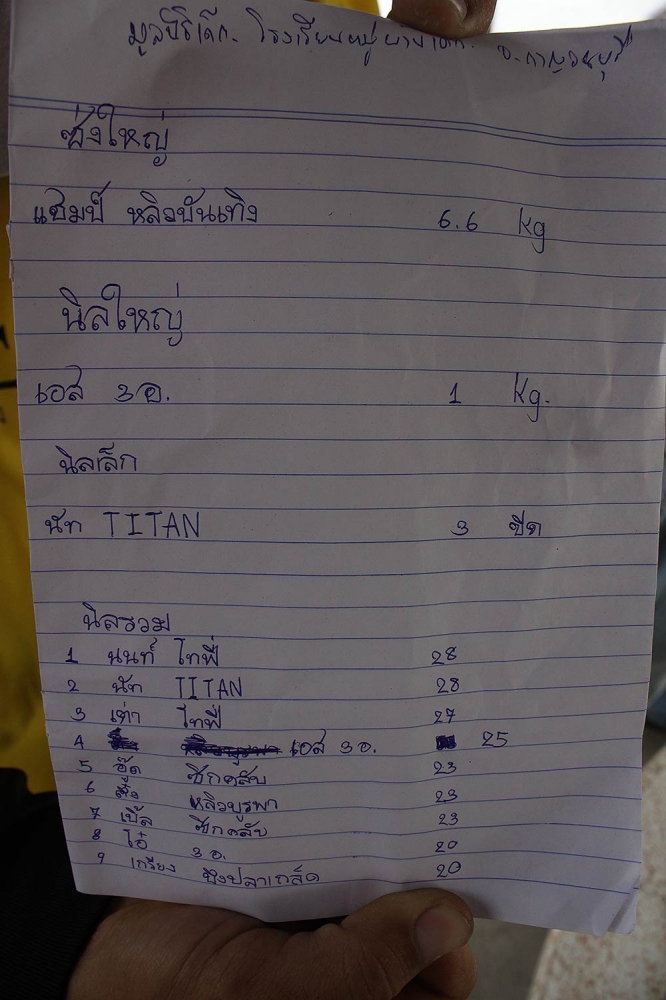 มูลนิธิเด็ก. โรงเรียนหมู่บ้านเด็ก. จ.กาญจนบุรี
ช่งใหญ่
แชมป์ หลิวบันเทิง 6.6 kg
นิลใหญ่
เอส 3 อ. 1 kg.
นิลเล็ก
นัท TITAN 3 ขีด
นิลรวม
1 นนท์ ไทฟี่ 28
2 นัท TITAN 28
3 เต่า ไทฟี่ 27
4 เอส 3 อ. 25
5 อู๊ด ซีกคลับ 23
6 หลิวบูรพา 23
7 เปิ้ล ซีกคลับ 23
8 ไอ๋ 3 อ. 20
9 เกรียง ชิงปลาเกล็ด 20